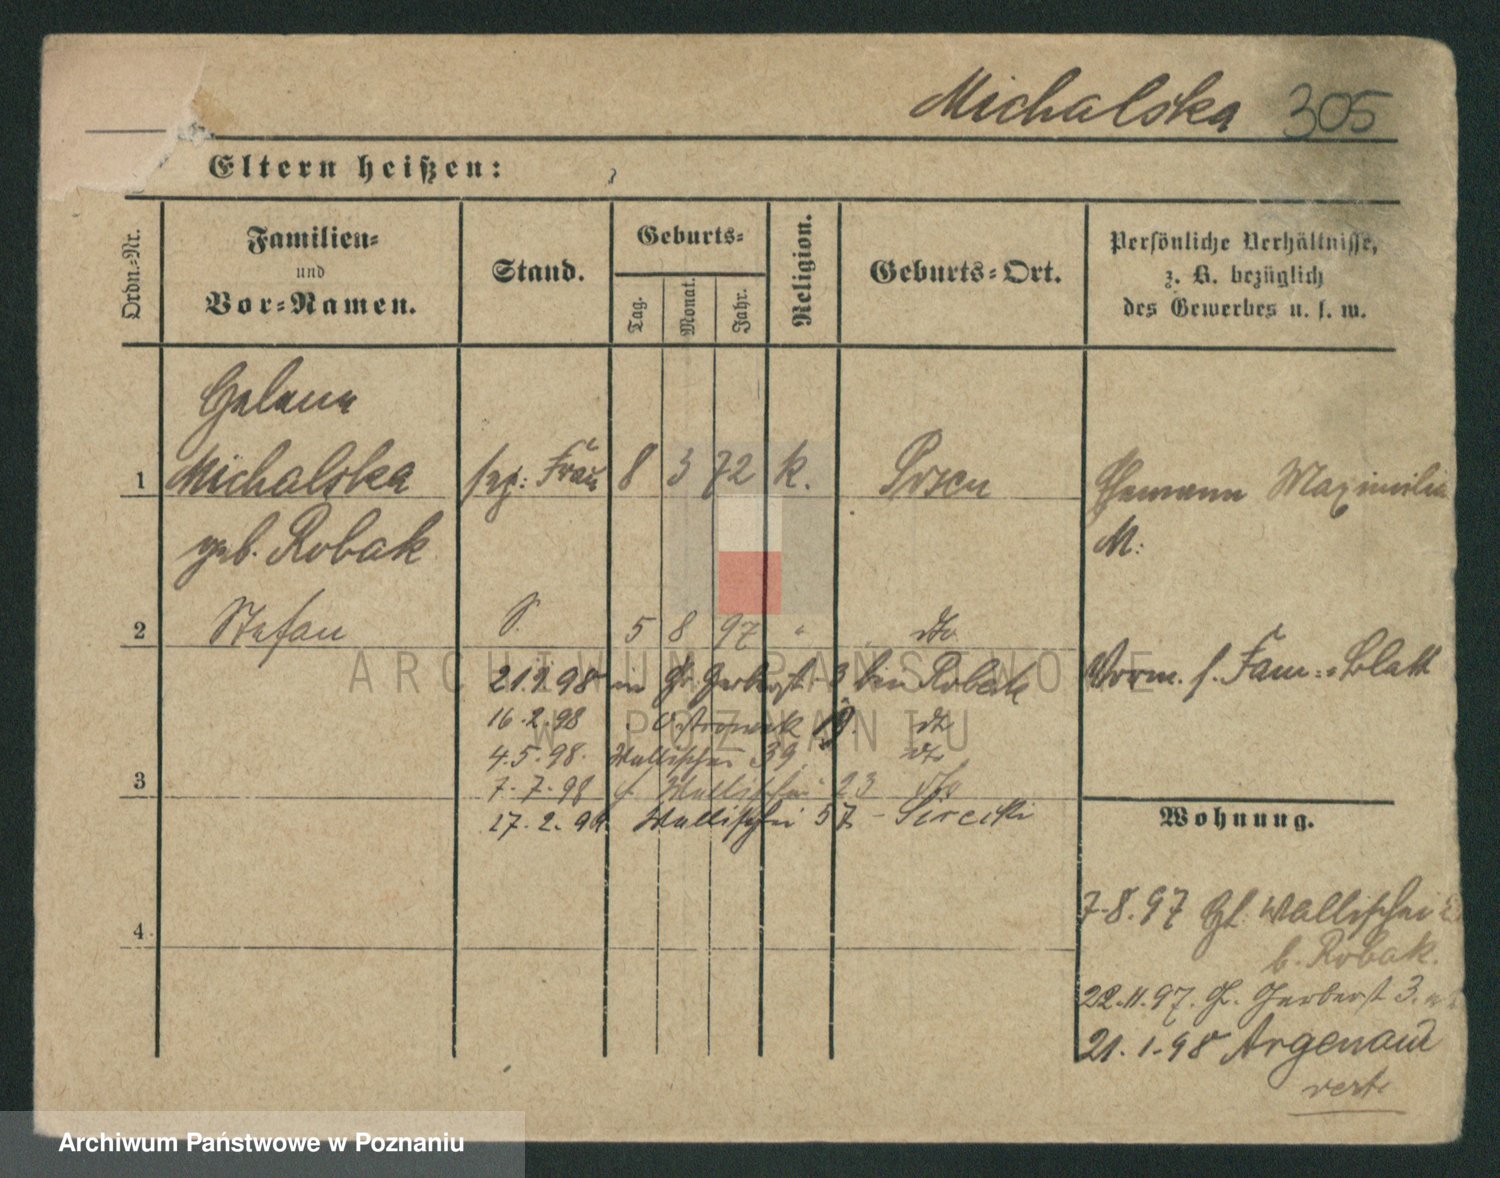 Michalska 305
Eltern heißen:
Ordn.=Nr.
Familien=
und
Vor=Namen.
Stand.
Geburts=
Tag.
Monat.
Jahr.
Religion.
Geburts=Ort.
Persönliche Verhältnisse,
z. B. bezüglich
des Gewerbes u. s. w.
Helena
1 Michalska sep: Frau 8 3 72 k. Posen Ehemann Maximilia
geb. Robak M:
2 Stefan S. 5 8 97 " dto
21.2.98 Gr Gerberst 3 bei Robak Vorm. s. Fam.=Blatt
16.2.98 Ostrowek dto
4.5.98. Wallischei 39 dto
3 7.7.98 Wallischei 23 dto
17.2.99. Wallischei 57 -
Wohnung.
7.8.97 Wallischei
4 b. Robak.
22.11.97. Gr. Gerberst 3.
21.1.98 Argenau
vert.
ARCHIWUM PAŃSTWOWE
W POZNANIU
Archiwum Państwowe w Poznaniu